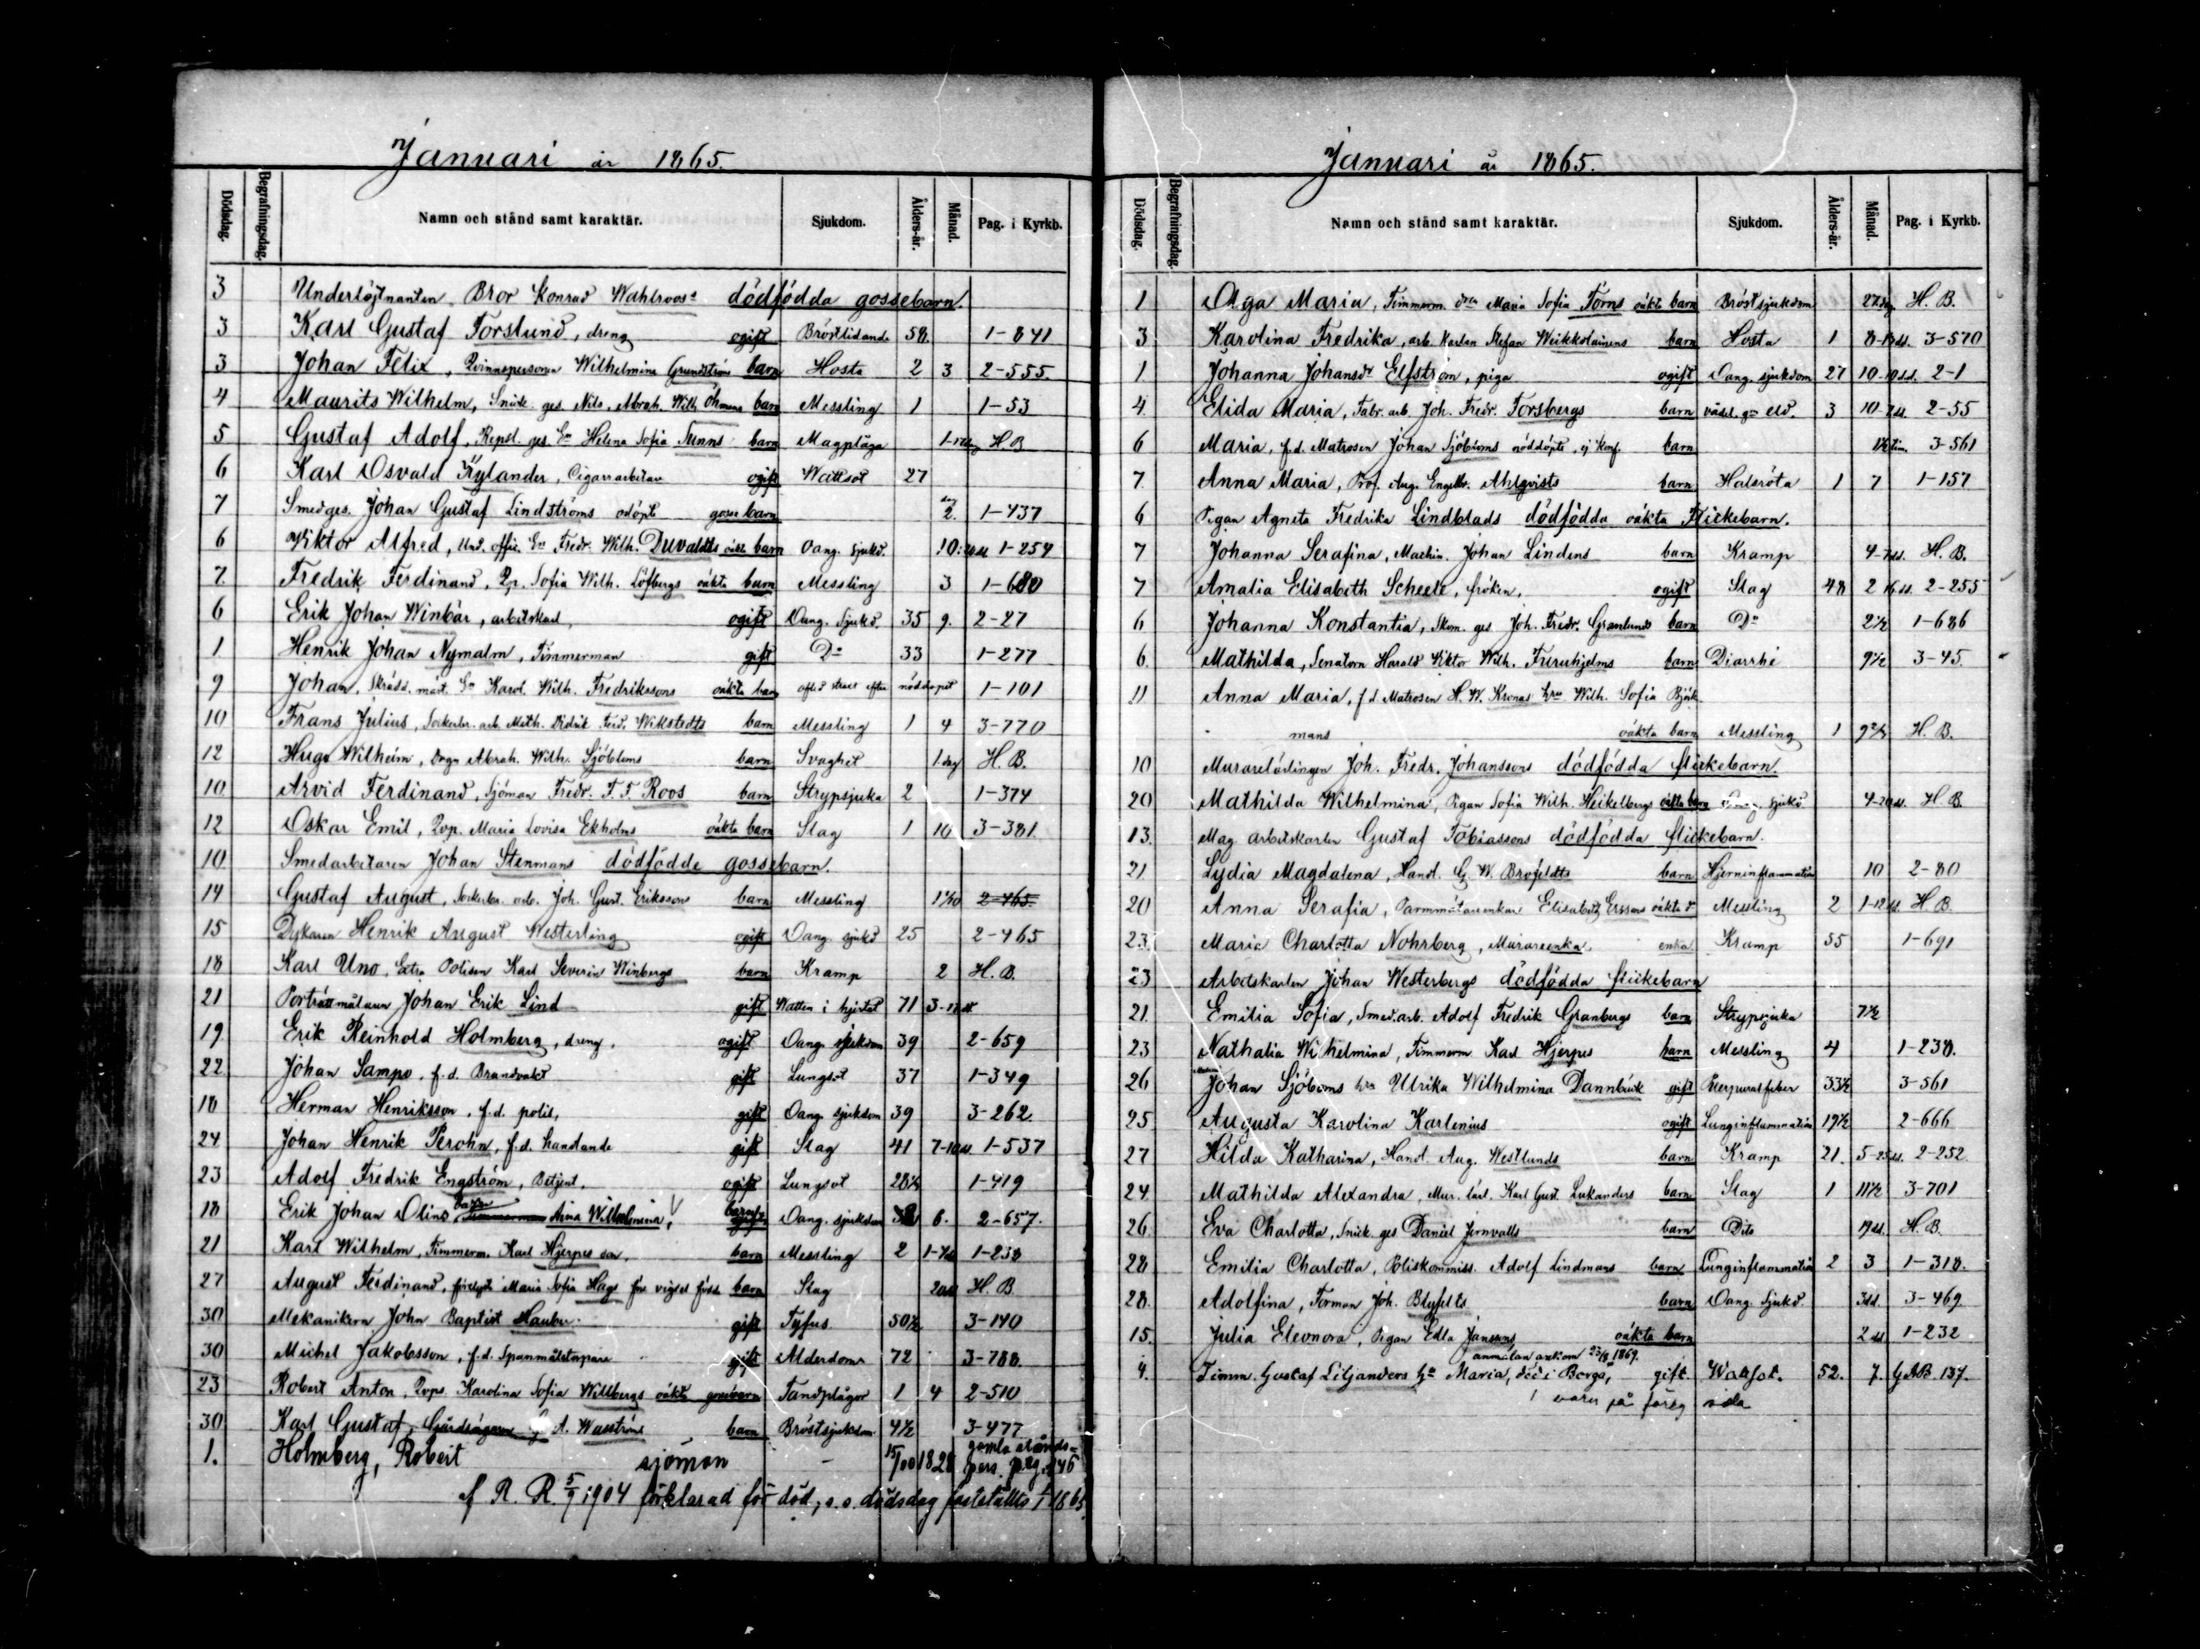 Januari år 1865.
Dödsdag. Begrafningsdag. Namn och stånd samt karaktär. Sjukdom. Ålders-år. Månad. Pag. i Kyrkb.
3 Underlöjtnanten Bror Konrad Wahlroos dödfödda gossebarn.
3 Karl Gustaf Forslund, dreng ogift Bröstlidande 58. 1-841
3 Johan Felix, Qvinnspersonen Wilhelmina Grundströms barn Hosta 2 3 2-555.
4 Maurits Wilhelm, Snick. ges. Nils. Abrah. Wilh. Öhmans barn Messling 1 1-53
5 Gustaf Adolf, Repsl. ges. Helena Sofia Sunns barn Magplåga H.B
6 Karl Osvald Kylander, Cigarrarbetare ogift Wattsot 27
7 Smedges. Johan Gustaf Lindströms odöpte gosse barn 2. 1-437
6 Viktor Alfred, Und. offic. Fredr. Wilh. Duvaldts oäkt. barn Oang. Sjukd. 1-254
7. Fredrik Ferdinand, Qp. Sofia Wilh. Löfbergs oäkta barn Messling 3 1-680
6 Erik Johan Winbär, arbetskarl, ogift Oang. Sjukd. 35 9. 2-27
1 Henrik Johan Nymalm, Timmerman gift Do 33 1-277
9 Johan, Skrädd. mäst. Karol. Wilh. Fredrikssons oäkta barn afled strax efter nöddopet 1-101
10 Frans Julius, Sockerbr. arb. Math. Didrik Ferd. Wikstedts barn Messling 1 4 3-770
12 Hugo Wilhelm, Abrah. Wilh. Sjöbloms barn Svaghet 1 dag H.B.
10 Arvid Ferdinand, Sjöman Fredr. F. F. Roos barn Strypsjuka 2 1-374
12 Oskar Emil, Qvp. Maria Lovisa Ekholms oäkta barn Slag 1 10 3-381.
10 Smedarbetaren Johan Stenmans dödfödde gossebarn.
14 Gustaf August, Sockerbr. arb. Joh. Gust. Erikssons barn Messling 2-465.
15 Dykaren Henrik August Westerling ogift Oang. sjukd 25 2-465
18 Karl Uno, Extra Polisen Karl Severin Winbergs barn Kramp 2 H.B.
21 Porträttmålaren Johan Erik Lind gift Watten i hjertat 71
19. Erik Reinhold Holmberg, dreng, ogift Oang. sjukdom 39 2-659
22 Johan Sampo, f.d. Brandvakt gift Lungsot 37 1-349
18 Herman Henriksson, f.d. polis, gift Oang. sjukdom 39 3-262.
24 Johan Henrik Perohn, f.d. handlande gift Slag 41 7-10dd. 1-537
23 Adolf Fredrik Engström, Betjent, ogift Lungsot 28½ 1-419
18 Erik Johan Olins barn Timmerman Aina Wilhelmina, barn Oang. sjukdom 6. 2-657.
21 Karl Wilhelm, Timmerm. Karl Hjerpes son, barn Messling 2 1-238
27 August Ferdinand, Maria Sofia Hags före vigsel född barn Slag H.B.
30 Mekanikern John Baptist Hauber gift Tyfus 50½ 3-140
30 Michel Jakobsson, f.d. Spanmålstapare gift Alderdom 72 3-788.
23 Robert Anton, Qvps. Karolina Sofia Willbergs oäkta gossebarn Tandplågor 1 4 2-510
30 Karl Gustaf, Gårdsägaren A. Wasströms barn Bröstsjukdom 4½ 3-477
1. Holmberg, Robert sjöman - 1828 gamla stånds-pers. pag. 146
af R. R. 5/9 1904 förklarad för död, s.s. dödsdag fastställts 1865.
Januari år 1865.
Dödsdag. Begrafningsdag. Namn och stånd samt karaktär. Sjukdom. Ålders-år. Månad. Pag. i Kyrkb.
1 Olga Maria, Timmerm. Maria Sofia Forns oäkta barn Bröstsjukdom H.B.
3 Karolina Fredrika, arb. karlen Stefan Weikkolainens barn Hosta 1 3-570
1 Johanna Johansdr Elfström, piga ogift Oang. sjukdom 27 2-1
4. Elida Maria, Fabr. arb. Joh. Fredr. Forsbergs barn vådel. gm eld. 3 2-55
6 Maria, f.d. Matrosen Johan Sjöbloms nöddöpte, ej konf. barn 3-561
7 Anna Maria, Prof. Aug. Engelbr. Ahlqvists barn Halsröta 1 7 1-157
6 Pigan Agneta Fredrika Lindblads dödfödda oäkta Flickebarn.
7 Johanna Serafina, Maskin. Johan Lindens barn Kramp 4-7dd. H.B.
7 Amalia Elisabeth Scheele, fröken, ogift Slag 48 2 2-255
6 Johanna Konstantia, Skom. ges. Joh. Fredr. Granlunds barn Do 2½ 1-686
6. Mathilda, Senatorn Harald Viktor Wilh. Furuhjelms barn Diarrhé 9½ 3-45.
11 Anna Maria, f.d. Matrosen H. W. Kronas hru Wilh. Sofia Björk
mans oäkta barn Messling 1 H.B.
10 Murarelärlingen Joh. Fredr. Johanssons dödfödda flickebarn.
20 Mathilda Wilhelmina, Pigan Sofia Wilh. Heikelbergs oäkta barn Oang. Sjukd H.B.
13. Mag. arbetskarlen Gustaf Tobiassons dödfödda flickebarn.
21 Lydia Magdalena, Hand. G. W. Brofeldts barn Hjerninflammation 10 2-80
20 Anna Serafia, Elisabeth oäkta d Messling 2 1-12dd. H.B.
23. Maria Charlotta Nohrberg, Murareenka. enka Kramp 55 1-691
23 Arbetskarlen Johan Westerbergs dödfödda flickebarn
21. Emilia Sofia, Smed.arb. Adolf Fredrik Granbergs barn Strypsjuka 7½
23 Nathalia Wilhelmina, Timmerm Karl Hjerpes barn Messling 4 1-238.
26 Johan Sjöbloms hru Ulrika Wilhelmina Dannbäck gift Puerperalfeber 33½ 3-561
25 Augusta Karolina Karlenius ogift Lunginflammation 19½ 2-666
27 Hilda Katharina, Hand. Aug. Westlunds barn Kramp 21. 5-25dd. 2-252
24. Mathilda Alexandra, Mur. lärl. Karl Gust. Lukanders barn Slag 1 11½ 3-701
26. Eva Charlotta, Snick. ges Daniel Jernvalls barn Dito 19dd. H.B.
28 Emilia Charlotta, Poliskommiss. Adolf Lindmans barn Lunginflammation 2 3 1-318.
28. Adolfina, Forman Joh. Blyfelts barn Oang. Sjukd 3dd. 3-469
15. Julia Eleonora, Pigan Edla Jansons oäkta barn 2 dd 1-232
anmälan ankom 23/8 1869.
4. Timm. Gustaf Liljanders hu Maria, död i Borgå, gift Wattsot. 52. 7. G.A.B. 137.
varer på föreg sida